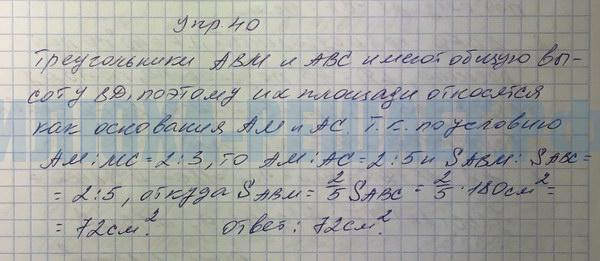 Упр. 40
Треугольники ABM и ABC имеют общую вы-
соту BD, поэтому их площади относятся
как основания AM и AC. Т.к. по условию
AM : MC = 2 : 3, то AM : AC = 2 : 5 и SABM : SABC =
= 2 : 5, откуда SABM = 2/5 SABC = 2/5 · 180 см² =
= 72 см². ответ: 72 см².